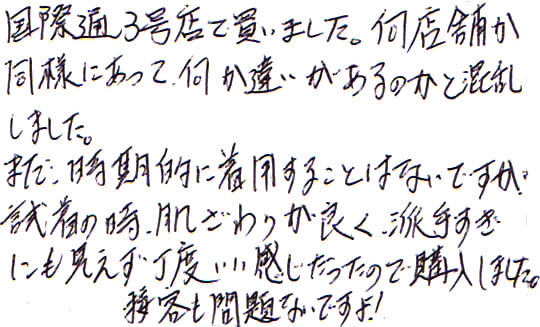 国際通3号店で買いました。何店舗か
同様にあって、何か違いがあるのかと混乱
しました。
まだ、時期的に着用することはないですが、
試着の時、肌ざわりが良く、派手すぎ
にも見えず丁度いい感じだったので購入しました。
接客も問題ないですよ!